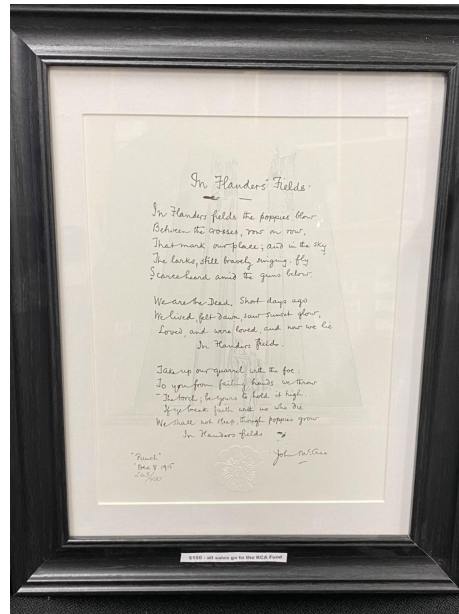 In Flanders Fields.
In Flanders fields the poppies blow
Between the crosses, row on row,
That mark our place; and in the sky
The larks, still bravely singing, fly
Scarce heard amid the guns below.
We are the Dead. Short days ago
We lived, felt dawn, saw sunset glow,
Loved, and were loved, and now we lie
In Flanders fields.
Take up our quarrel with the foe:
To you from failing hands we throw
The torch; be yours to hold it high.
If ye break faith with us who die
We shall not sleep, though poppies grow
In Flanders fields
John McCrae
"Punch"
Dec 8 1915
$150 - all sales go to the RCA Fund